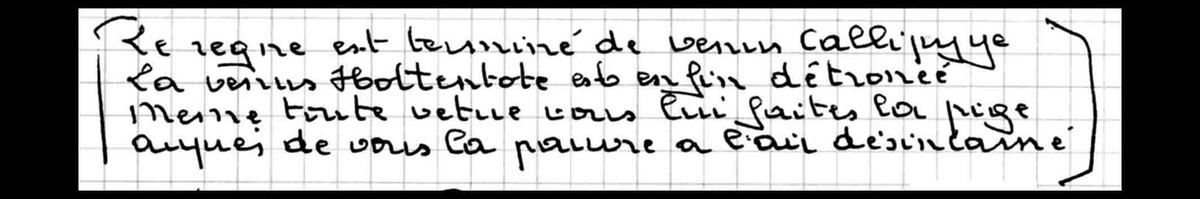 Le regne est terminé de venus Callipyge
La venus Hottentote est enfin détronée
Meme toute vetue vous lui faites la pige
auprés de vous la pauvre a l'air désincarné